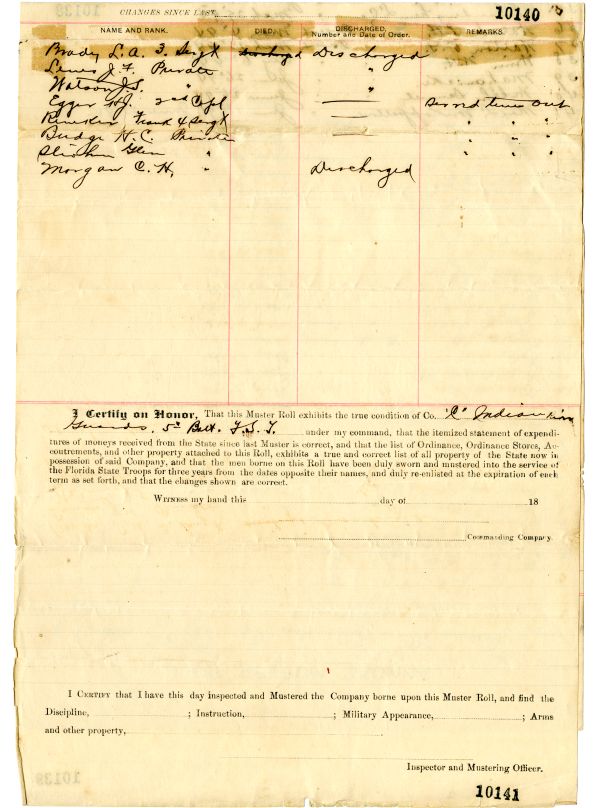 CHANGES SINCE LAST
10140
NAME AND RANK. DIED. DISCHARGED, Number and Date of Order. REMARKS.
Brady L. A. 3. Sergt Discharged Discharged
Lewis J. F. Private "
Watson J. S. " "
Egger H J. 2nd Cpl Served time out
Frank 4 Sergt " " "
Budge H. C. Private " " "
Glen " " " "
Morgan C. H, " Discharged
I Certify on Honor, That this Muster Roll exhibits the true condition of Co. "C" Indian River
Guards, 5th Batt. F. S. T. under my command, that the itemized statement of expendi-
tures of moneys received from the State since last Muster is correct, and that the list of Ordinance, Ordinance Stores, Ac-
coutrements, and other property attached to this Roll, exhibits a true and correct list of all property of the State now in
possession of said Company, and that the men borne on this Roll have been duly sworn and mustered into the service of
the Florida State Troops for three years from the dates opposite their names, and duly re-enlisted at the expiration of each
term as set forth, and that the changes shown are correct.
WITNESS my hand this day of 18
Commanding Company.
I CERTIFY that I have this day inspected and Mustered the Company borne upon this Muster Roll, and find the
Discipline, ; Instruction, ; Military Appearance, ; Arms
and other property,
Inspector and Mustering Officer.
10141